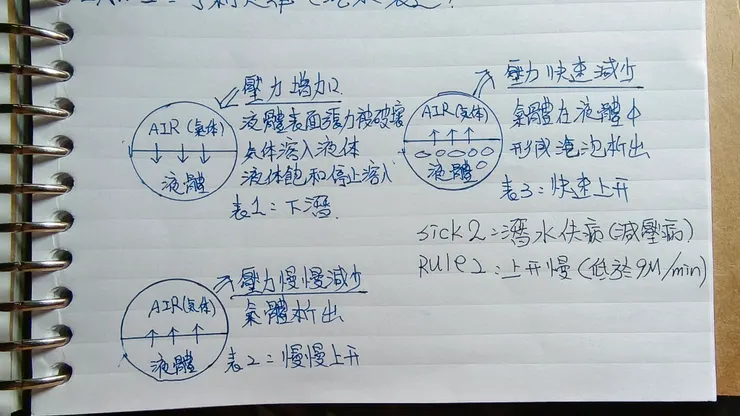 壓力增加
AIR(氣体)
液體
液體表面張力被破壞
気体溶入液体
液体飽和停止溶入
表1:下潛
壓力快速減少
AIR(氣体)
液體
氣體在液體中
形成泡泡析出
表3:快速上升
SICK2:潛水伕病(減壓病)
RULE2:上升慢(低於9M/min)
壓力慢慢減少
AIR(氣体)
液體
氣體析出
表2:慢慢上升